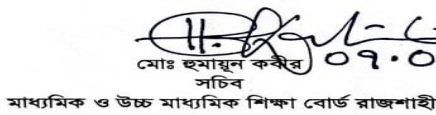 ০৭.০
মোঃ হুমায়ূন কবীর
সচিব
মাধ্যমিক ও উচ্চ মাধ্যমিক শিক্ষা বোর্ড রাজশাহী